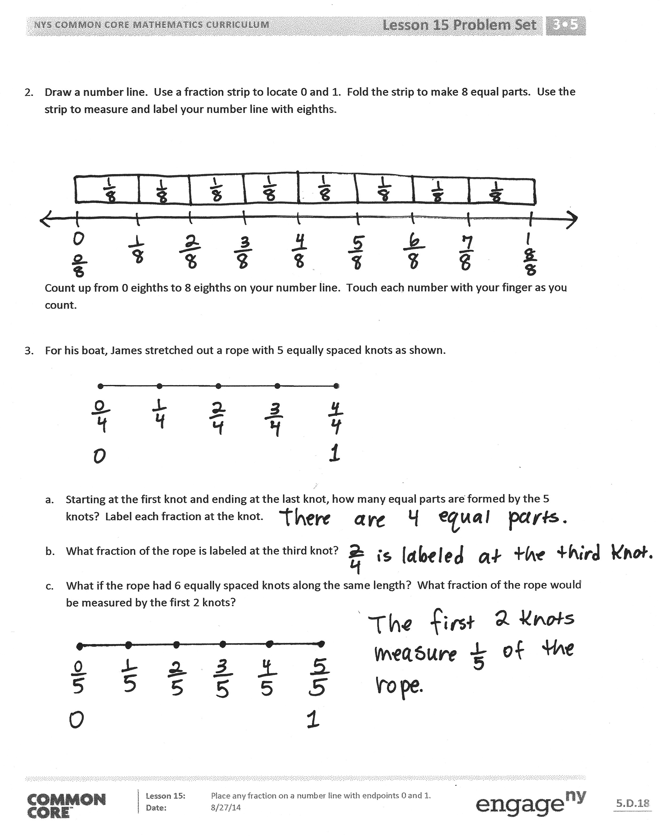 NYS COMMON CORE MATHEMATICS CURRICULUM Lesson 15 Problem Set 3•5
2. Draw a number line. Use a fraction strip to locate 0 and 1. Fold the strip to make 8 equal parts. Use the
strip to measure and label your number line with eighths.
1/8 1/8 1/8 1/8 1/8 1/8 1/8 1/8
0 1/8 2/8 3/8 4/8 5/8 6/8 7/8 1
0/8 8/8
Count up from 0 eighths to 8 eighths on your number line. Touch each number with your finger as you
count.
3. For his boat, James stretched out a rope with 5 equally spaced knots as shown.
0/4 1/4 2/4 3/4 4/4
0 1
a. Starting at the first knot and ending at the last knot, how many equal parts are formed by the 5
knots? Label each fraction at the knot. There are 4 equal parts.
b. What fraction of the rope is labeled at the third knot? 2/4 is labeled at the third knot.
c. What if the rope had 6 equally spaced knots along the same length? What fraction of the rope would
be measured by the first 2 knots?
The first 2 knots
measure 1/5 of the
rope.
0/5 1/5 2/5 3/5 4/5 5/5
0 1
COMMON CORE™
Lesson 15: Place any fraction on a number line with endpoints 0 and 1.
Date: 8/27/14
engageny
5.D.18